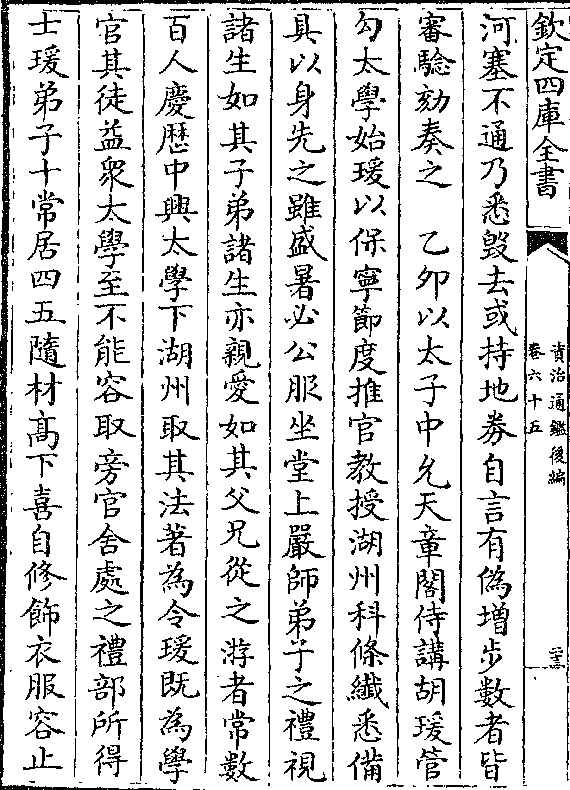 欽定四庫全書
資治通鑑後編
卷六十五
河塞不通乃悉毀去或持地券自言有偽增步數者皆
審驗劾奏之　乙卯以太子中允天章閣侍講胡瑗管
勾太學始瑗以保寧節度推官教授湖州科條纖悉備
具以身先之雖盛暑必公服坐堂上嚴師弟子之禮視
諸生如其子弟諸生亦親愛如其父兄從之游者常數
百人慶厯中興太學下湖州取其法著為令瑗既為學
官其徒益衆太學至不能容取旁官舍處之禮部所得
士瑗弟子十常居四五隨材髙下喜自修飾衣服容止